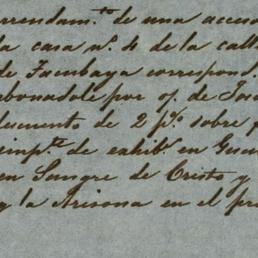 arrendam.to de una acceso
la casa n.o 4 de la calle
de Tacubaya correspond.
abonadole por of. de Jos
descuento de 2 p.s sobre
imp.te de exhib.s en Gua
en Sangre de Cristo y
y la Arisona en el pre